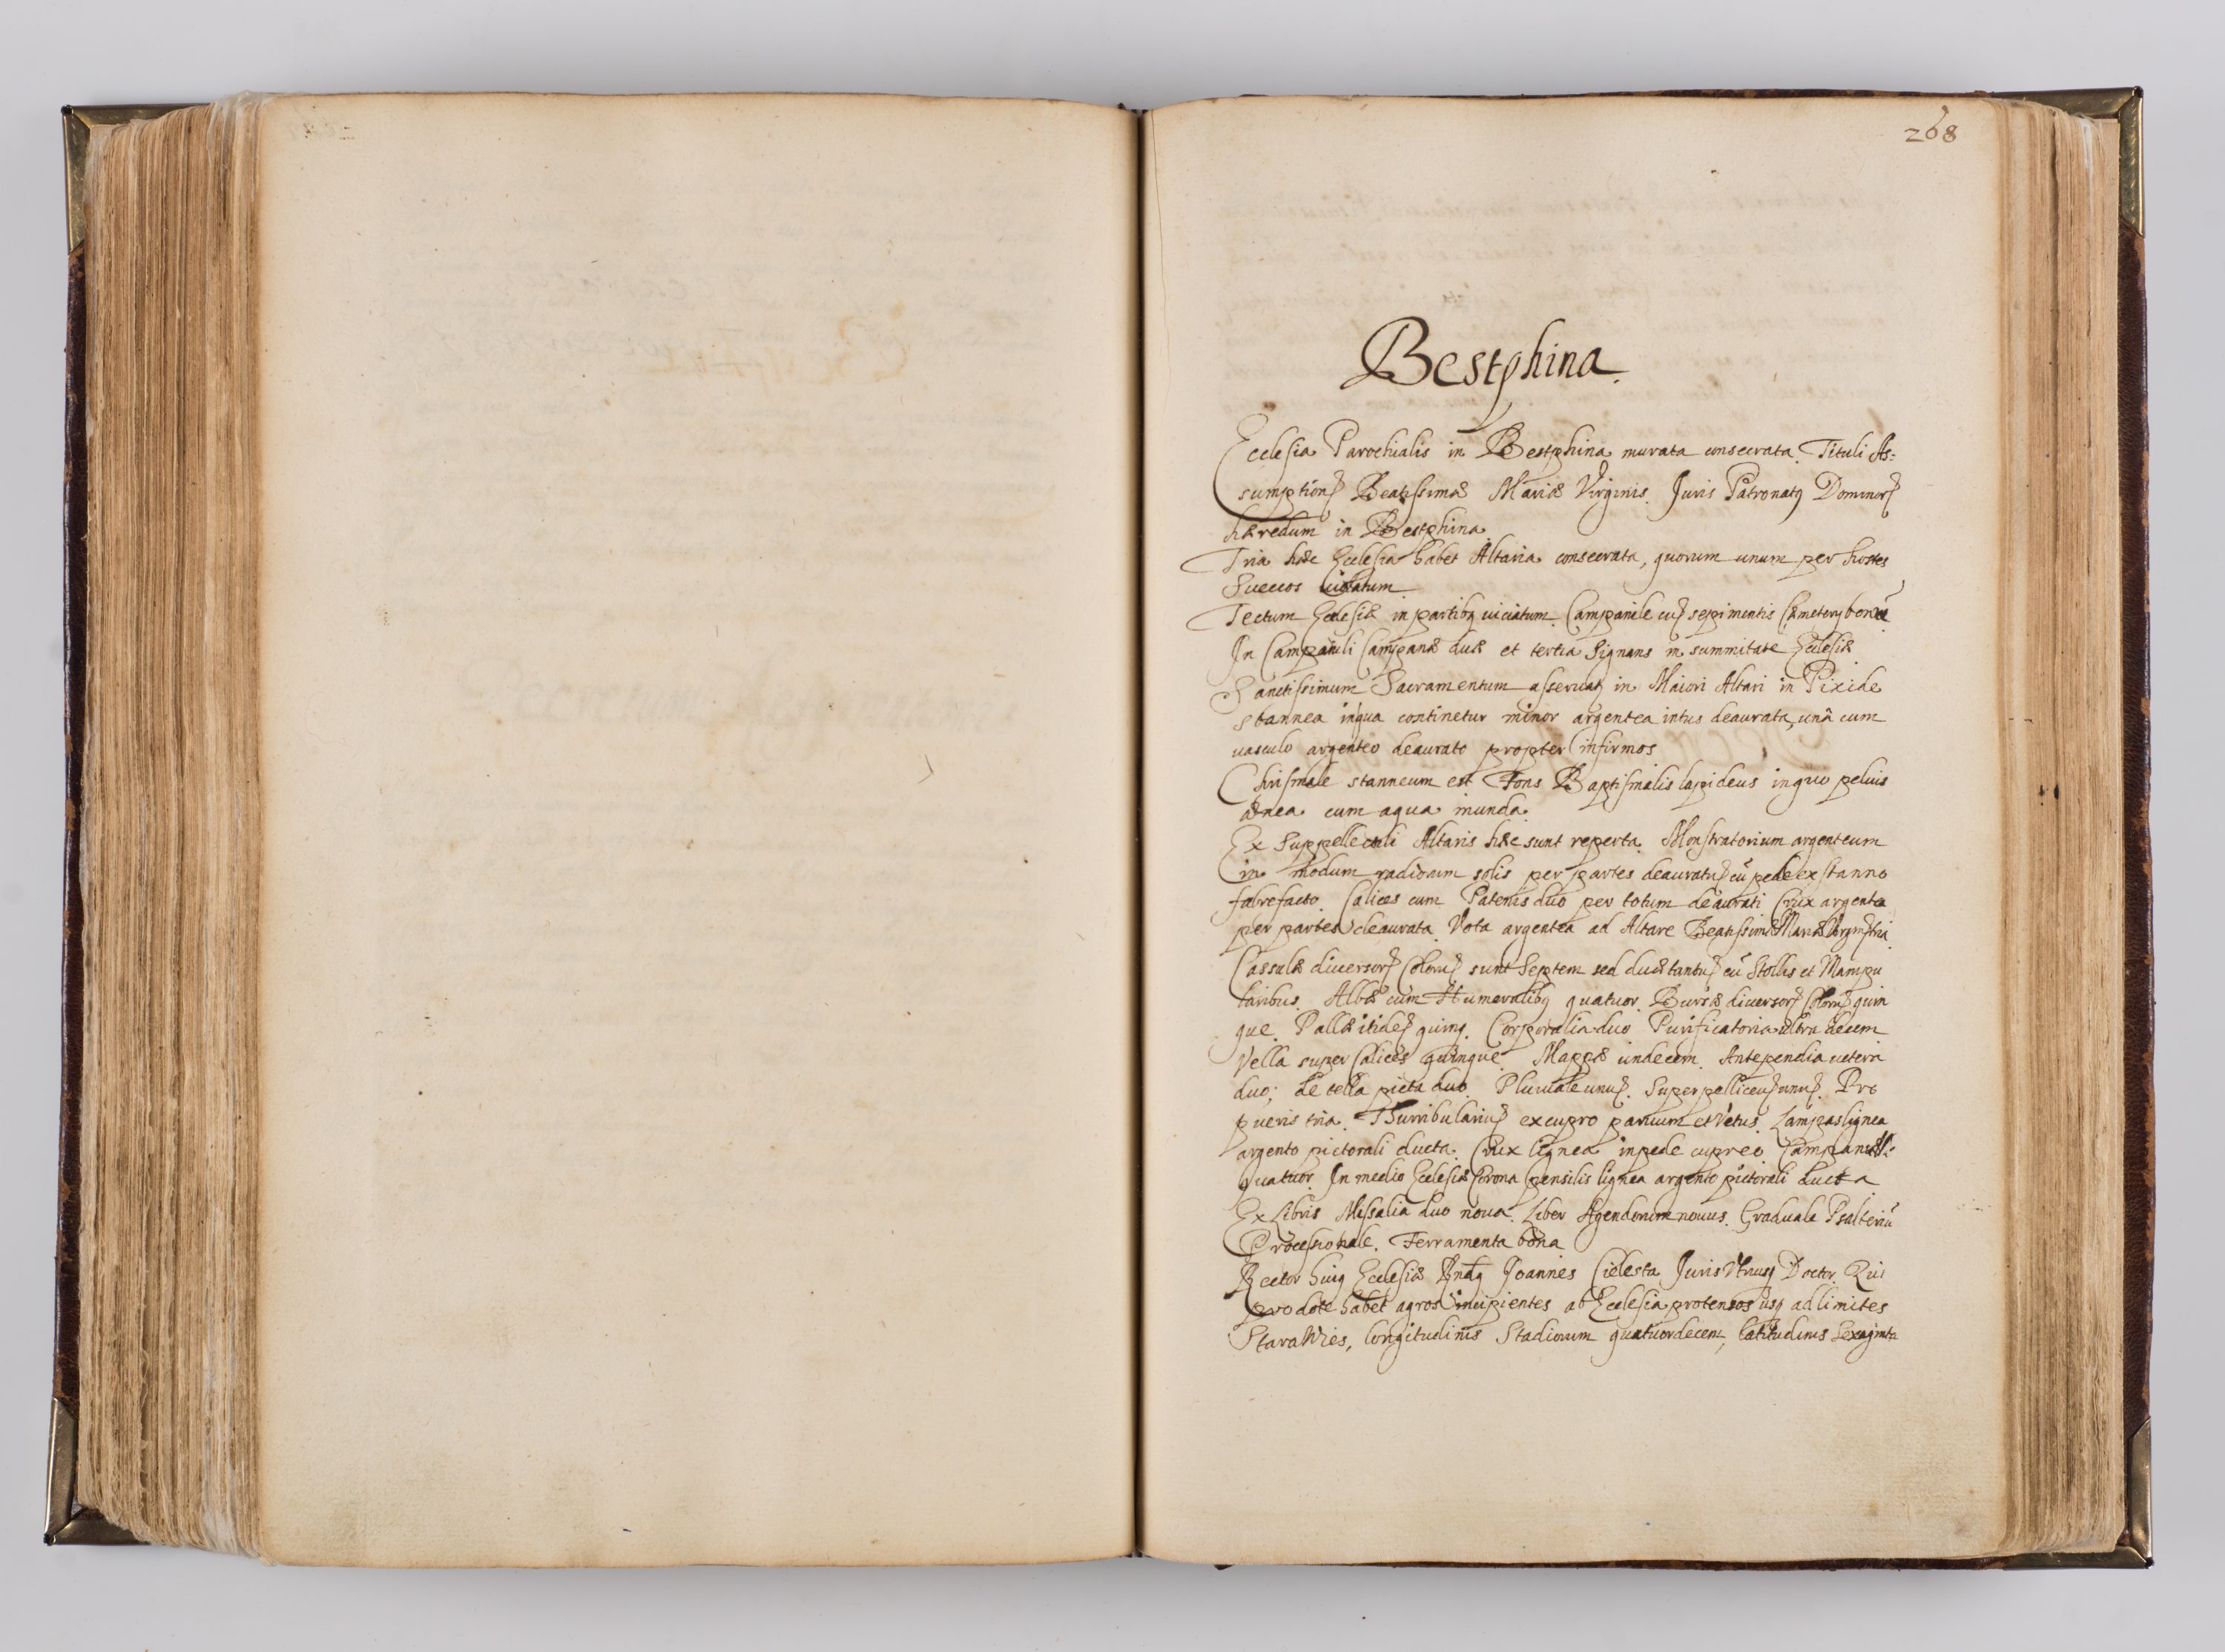 268
Bestphina.
Ecclesia Parochialis in Bestphina murata consecrata. Tituli As=
sumptionꝭ Beatissimæ Mariæ Virginis. Juris Patronatꝰ Dominorꝝ
hæredum in Bestphina.
Tria hæc Ecclesia habet Altaria consecrata, quorum unum per hostes
Suecos violatum
Tectum Ecclesiæ in partibꝰ viciatum. Campanile cũ sepimentis Cæmeterij bonũ
In Campanili Campanæ duæ et tertia Signans in summitate Ecclesiæ
Sanctissimum Sacramentum asservatꝰ in Maiori Altari in Pixide
stannea in qua continetur minor argentea intus deaurata, unâ cum
vasculo argenteo deaurato propter infirmos
Chrismale stanneum est Fons Baptismalis lapideus in quo peluis
ænea cum aqua munda.
Ex Suppellectili Altaris hæc sunt reperta. Monstratorium argenteum
in modum radiorum solis per partes deauratũ cũ pede ex stanno
fabrefacto. Calices cum Patenis duo per totum deaurati Crux argentea
per partes deaurata. Vota argentea ad Altare Beatissimæ Mariæ Virginis tria.
Cassulæ diversorꝝ Colorũ sunt Septem sed duæ tantũ cũ Stollis et Manipu
laribus. Albæ cum Humeralibꝰ quatuor. Bursæ diversorꝝ Colorũ quin
que. Pallæ itidẽ quinqꝫ. Corporalia duo Purificatoria ultra decem
Vella super Calices quinque. Mappæ undecem. Antependia vetera
duo; de tella picta duo. Pluviale unũ. Superpelliceũ unũ. Pro
pueris tria. Thurribulariũ ex cupro parvum et vetus. Lampas lignea
argento pictorali ducta. Crux lignea in pede cupreo Campanulæ
quatuor. In medio Ecclesiæ Corona pensilis lignea argento pictorali ducta
Ex Libris Missalia duo nova. Liber Agendorum novus. Graduale Psalteriũ
Processionale. Ferramenta bona
Rector huiꝰ Ecclesiæ Rndꝰ Joannes Cielesta Juris Utriusqꝫ Doctor. Qui
pro dote habet agros incipientes ab Ecclesia protensos usqꝫ ad limites
Stara Wies, longitudinis Stadiorum quatuordecem, latitudinis Sexaginta